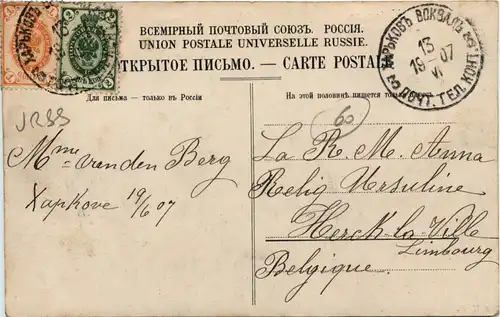 ВСЕМІРНЫЙ ПОЧТОВЫЙ СОЮЗЪ. РОССІЯ.
UNION POSTALE UNIVERSELLE RUSSIE.
ОТКРЫТОЕ ПИСЬМО. — CARTE POSTALE
Для письма — только въ Россіи
На этой половинѣ пишется только
ХАРЬКОВЪ ВОКЗАЛЪ
13
19 07
VI
ПОЧТ. ТЕЛ. КОНТ.
JRSS
60
Mme van den Berg
Харкове 19/6 07
La R. M. Anna
Relig Ursuline
Herck-la-Ville
Limbourg
Belgique.